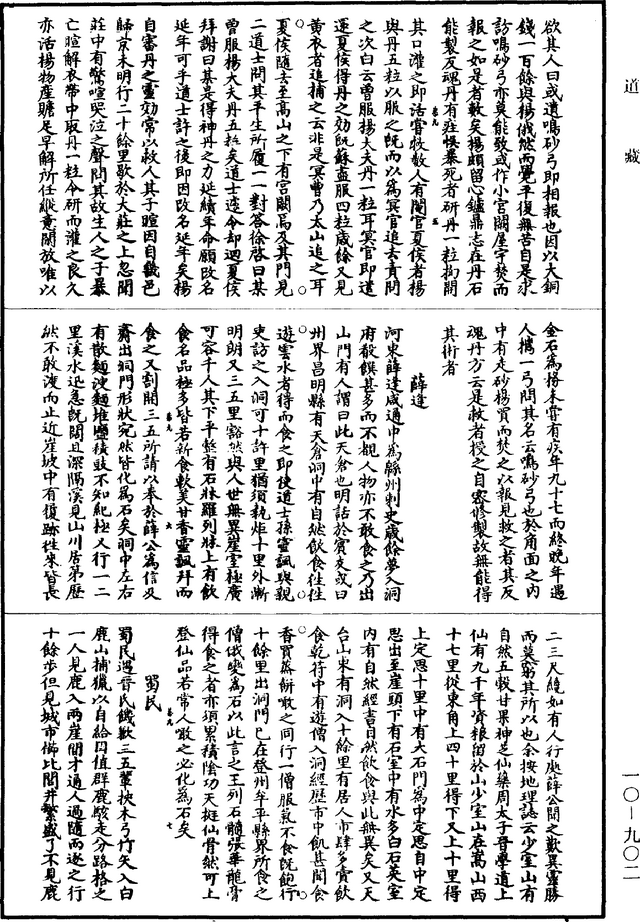 道藏
欲其人曰或遺鳴砂弓即相報也因以大銅
錢一百餘與楊俄然而覺平復無苦自是求
訪鳴砂弓亦莫能致或作小宮闕屋宇焚而
報之如是者數矣楊頗留心鑪鼎志在丹石
能製反魂丹有疰悮暴死者研丹一粒拗開
其口灌之即活嘗救數人有閽官夏侯者楊
與丹五粒以服之既而以為冥官追去責問
之次白云曾服楊大夫丹一粒耳冥官即遣
還夏侯得丹之効既蘇盡服四粒歲餘又見
黃衣者追捕之云非是冥曹乃太山追之耳
夏侯隨去至高山之下有宮闕焉及其門見
二道士問其平生所履一一對答徐啓曰某
曾服楊大夫丹五粒矣道士遽令却迴夏侯
拜謝曰某是得神丹之力延續年命願改名
延年可乎道士許之後即因改名延年矣楊
自審丹之靈効常以救人其子暄因自畿邑
歸京未明行二十餘里歇於大莊之上忽聞
莊中有驚喧哭泣之聲問其故主人之子暴
亡暄解衣帶中取丹一粒令研而灌之良久
亦活楊物産贍足早解所任縱意閑放唯以
金石為務未嘗有疾年九十七而終晚年遇
人攜一弓問其名云鳴砂弓也於角面之內
中有走砂楊買而焚之以報見救之者其反
魂丹方云是救者授之自密修製故無能得
其術者
薛逢
河東薛逢咸通中為緜州刺史歲餘夢入洞
府殽饌甚多而不覩人物亦不敢食之乃出
山門有人謂曰此天倉也明話於賓友或曰
州界昌明縣有天倉洞中有自然飲食往往
遊雲水者得而食之即使道士孫靈諷與親
吏訪之入洞可十許里猶須執炬十里外漸
明朗又三五里豁然與人世無異崖室極廣
可容千人其下平整有石牀羅列牀上有飲
食名品極多皆若新食軟美甘香靈諷拜而
食之又割開三五所請以奉於薛公為信及
齎出洞門形狀宛然皆化為石矣洞中左右
有散麵溲麵堆鹽積豉不知紀極又行一二
里溪水迅急既闊且深隔溪見山川居第歷
然不敢渡而止近崖坡中有履跡往來皆長
二三尺纔如有人行處薛公聞之歎異靈勝
而莫窮其所以也余按地理誌云少室山有
自然五穀甘果神芝仙藥周太子晉學道上
仙有九千年資糧留於山少室山在嵩山西
十七里從東角上四十里得下又上十里得
上定思十里中有大石門為中定思自中定
思出至崖頭下有石室中有水多白石英室
內有自然經書自然飲食與此無異矣又天
台山東有洞入十餘里有居人市肆多賣飲
食乾符中有遊僧入洞經歷市中飢甚聞食
香買蒸餅啖之同行一僧服氣不食既飽行
十餘里出洞門已在登州牟平縣界所食之
僧俄變為石以此言之王列石髓張華龍膏
得食之者亦須累積陰功天挺仙骨然可上
登仙品若常人啖之必化為石矣
蜀民
蜀民遇晉氏饑歉三五輩挾木弓竹矢入白
鹿山捕獵以自給因值群鹿駭走分路格之
一人見鹿入兩崖間才通人過隨而逐之行
十餘步但見城市櫛比閭井繁盛了不見鹿
一〇-九〇二